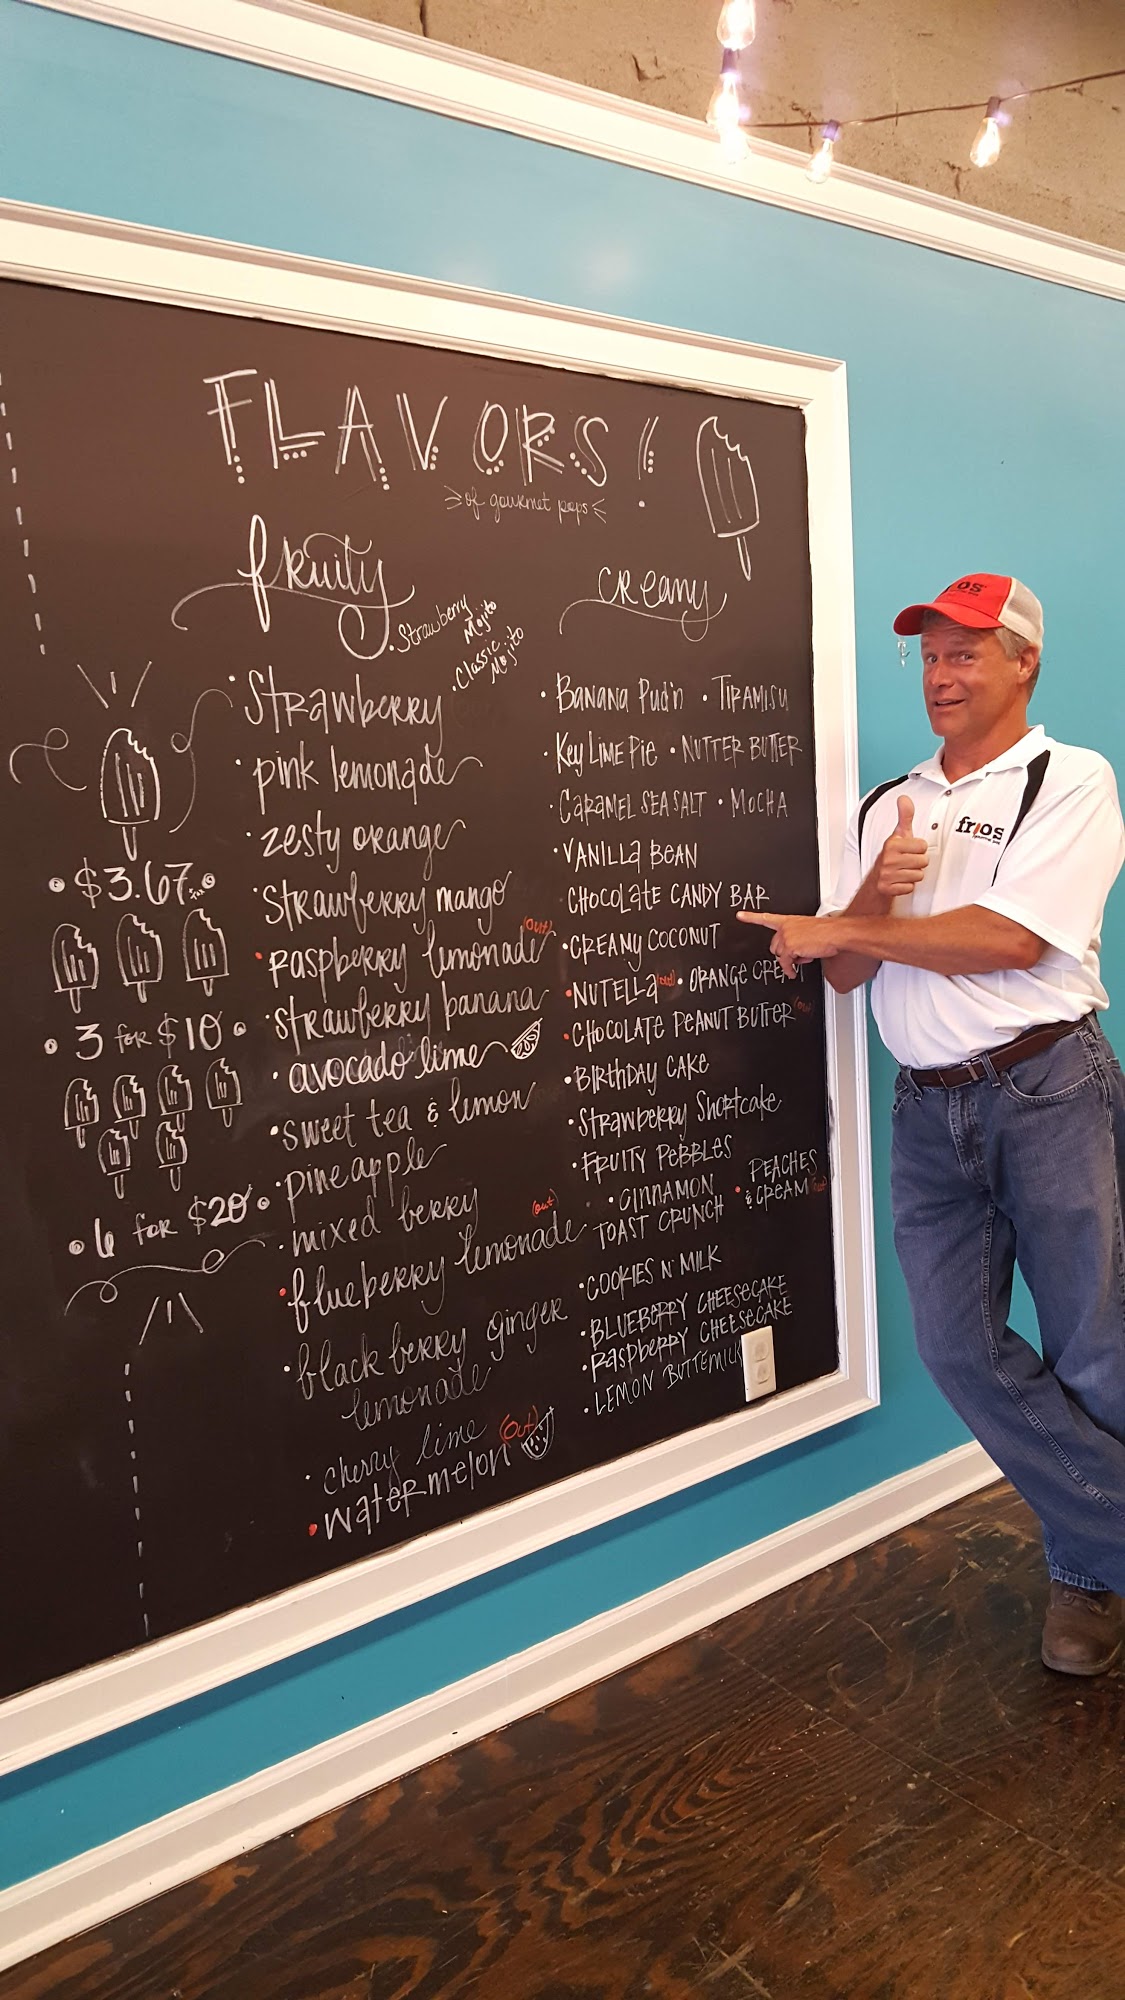 FLAVORS!
of gourmet pops
fruity
• Strawberry Mojito
• Classic Mojito
• Strawberry
• pink lemonade
• zesty orange
• Strawberry mango
• raspberry lemonade (out)
• strawberry banana
• avocado lime
• sweet tea & lemon
• pineapple
• mixed berry
• blueberry lemonade (out)
• black berry ginger
lemonade
• cherry lime
• watermelon (out)
$3.67
3 for $10
6 for $20
creamy
• Banana Pud'n • Tiramisu
• Key Lime Pie • Nutter Butter
• Caramel Sea Salt • Mocha
• Vanilla Bean
Chocolate Candy Bar
• Creamy Coconut
• Nutella (out) • Orange Cream
• Chocolate Peanut Butter (out)
• Birthday Cake
• Strawberry Shortcake
• Fruity Pebbles
• Cinnamon
Toast Crunch
• Peaches
& Cream (out)
• Cookies N' Milk
• Blueberry Cheesecake
• Raspberry Cheesecake
• Lemon Buttemilk
frios
frios